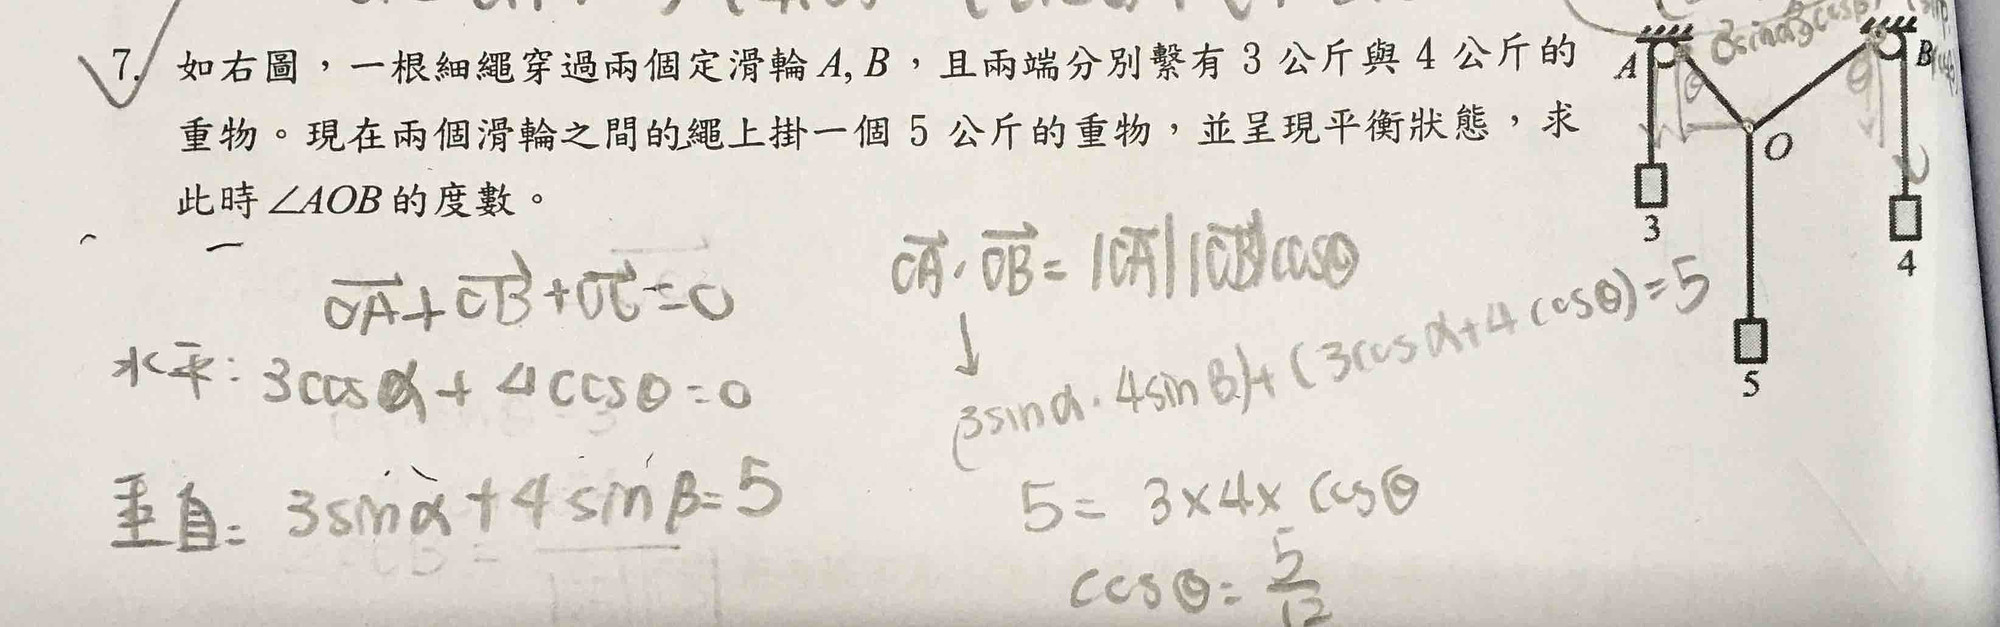 7. 如右圖，一根細繩穿過兩個定滑輪 A, B，且兩端分別繫有 3 公斤與 4 公斤的
重物。現在兩個滑輪之間的繩上掛一個 5 公斤的重物，並呈現平衡狀態，求
此時∠AOB 的度數。
A
B
O
3
4
5
OA + OB + OC = 0
水平: 3cosα + 4cosθ = 0
垂直: 3sinα + 4sinβ = 5
OA · OB = |OA| |OB| cosθ
↓
(3sinα · 4sinβ) + (3cosα + 4cosθ) = 5
5 = 3×4× cosθ
cosθ = 5/12